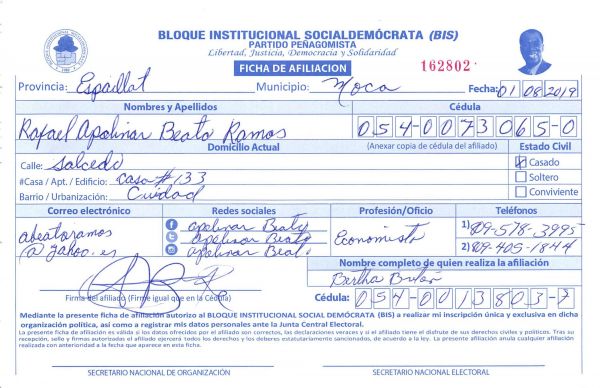 BLOQUE INSTITUCIONAL SOCIALDEMÓCRATA (BIS)
PARTIDO PEÑAGOMISTA
Libertad, Justicia, Democracia y Solidaridad
FICHA DE AFILIACION
162802
Provincia: Espaillat Municipio: Moca Fecha: 01 08 2019
Nombres y Apellidos Cédula
Rafael Apolinar Beato Ramos 054-0073065-0
Domicilio Actual (Anexar copia de cédula del afiliado) Estado Civil
Calle: Salcedo Casado
#Casa / Apt. / Edificio: Casa # 133 Soltero
Barrio / Urbanización: Ciudad Conviviente
Correo electrónico Redes sociales Profesión/Oficio Teléfonos
abeatoramos @yahoo.es Apolinar Economista 1) 809-578-3995
Apolinar 2) 809-405-1844
Apolinar
Nombre completo de quien realiza la afiliación
Bertha
Firma del afiliado (Firme igual que en la Cédula) Cédula: 054-0013803-7
Mediante la presente ficha de afiliación autorizo al BLOQUE INSTITUCIONAL SOCIAL DEMÓCRATA (BIS) a realizar mi inscripción única y exclusiva en dicha
organización política, así como a registrar mis datos personales ante la Junta Central Electoral.
La presente ficha de afiliación es válida si los datos ofrecidos por el afiliado son correctos, las declaraciones veraces y si el afiliado tiene el disfrute de sus derechos civiles y políticos. Tras su
recepción, sello y firmas autorizadas el afiliado ejercerá todos los derechos y los deberes estatutariamente sancionados, de acuerdo a la ley. La presente afiliación anula cualquier afiliación
realizada con anterioridad a la fecha que aparece en esta ficha.
SECRETARIO NACIONAL DE ORGANIZACIÓN SECRETARIO NACIONAL ELECTORAL